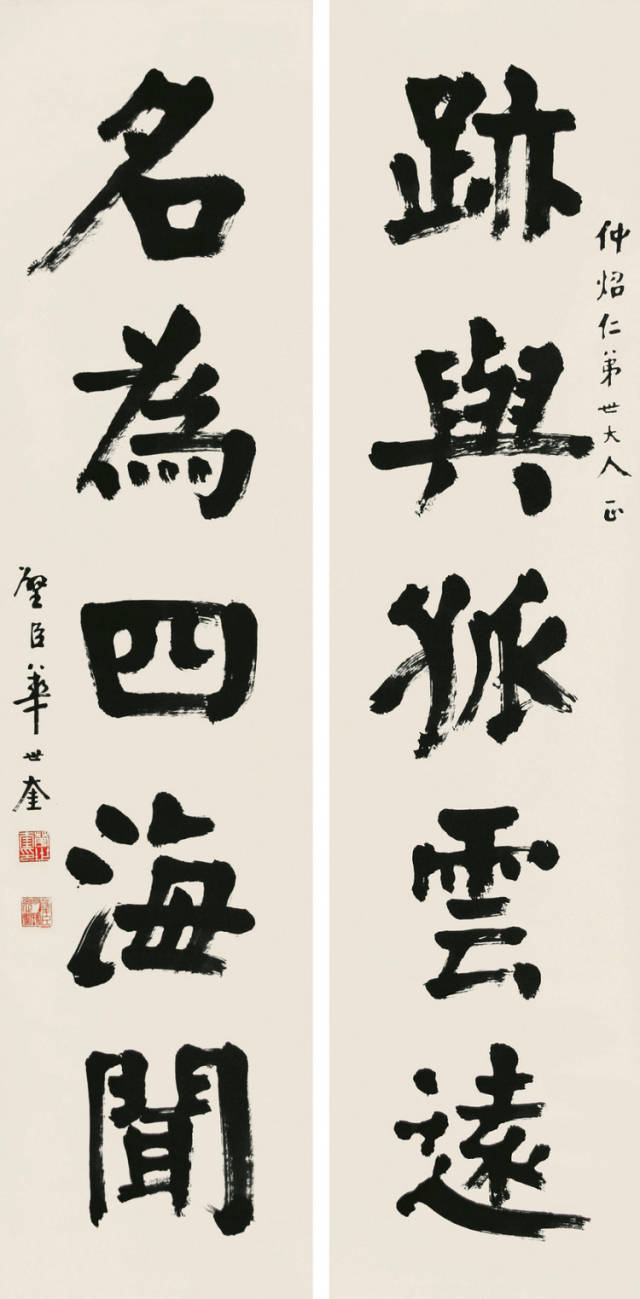 跡與孤雲遠
仲炤仁弟世大人正
名為四海聞
璧臣華世奎